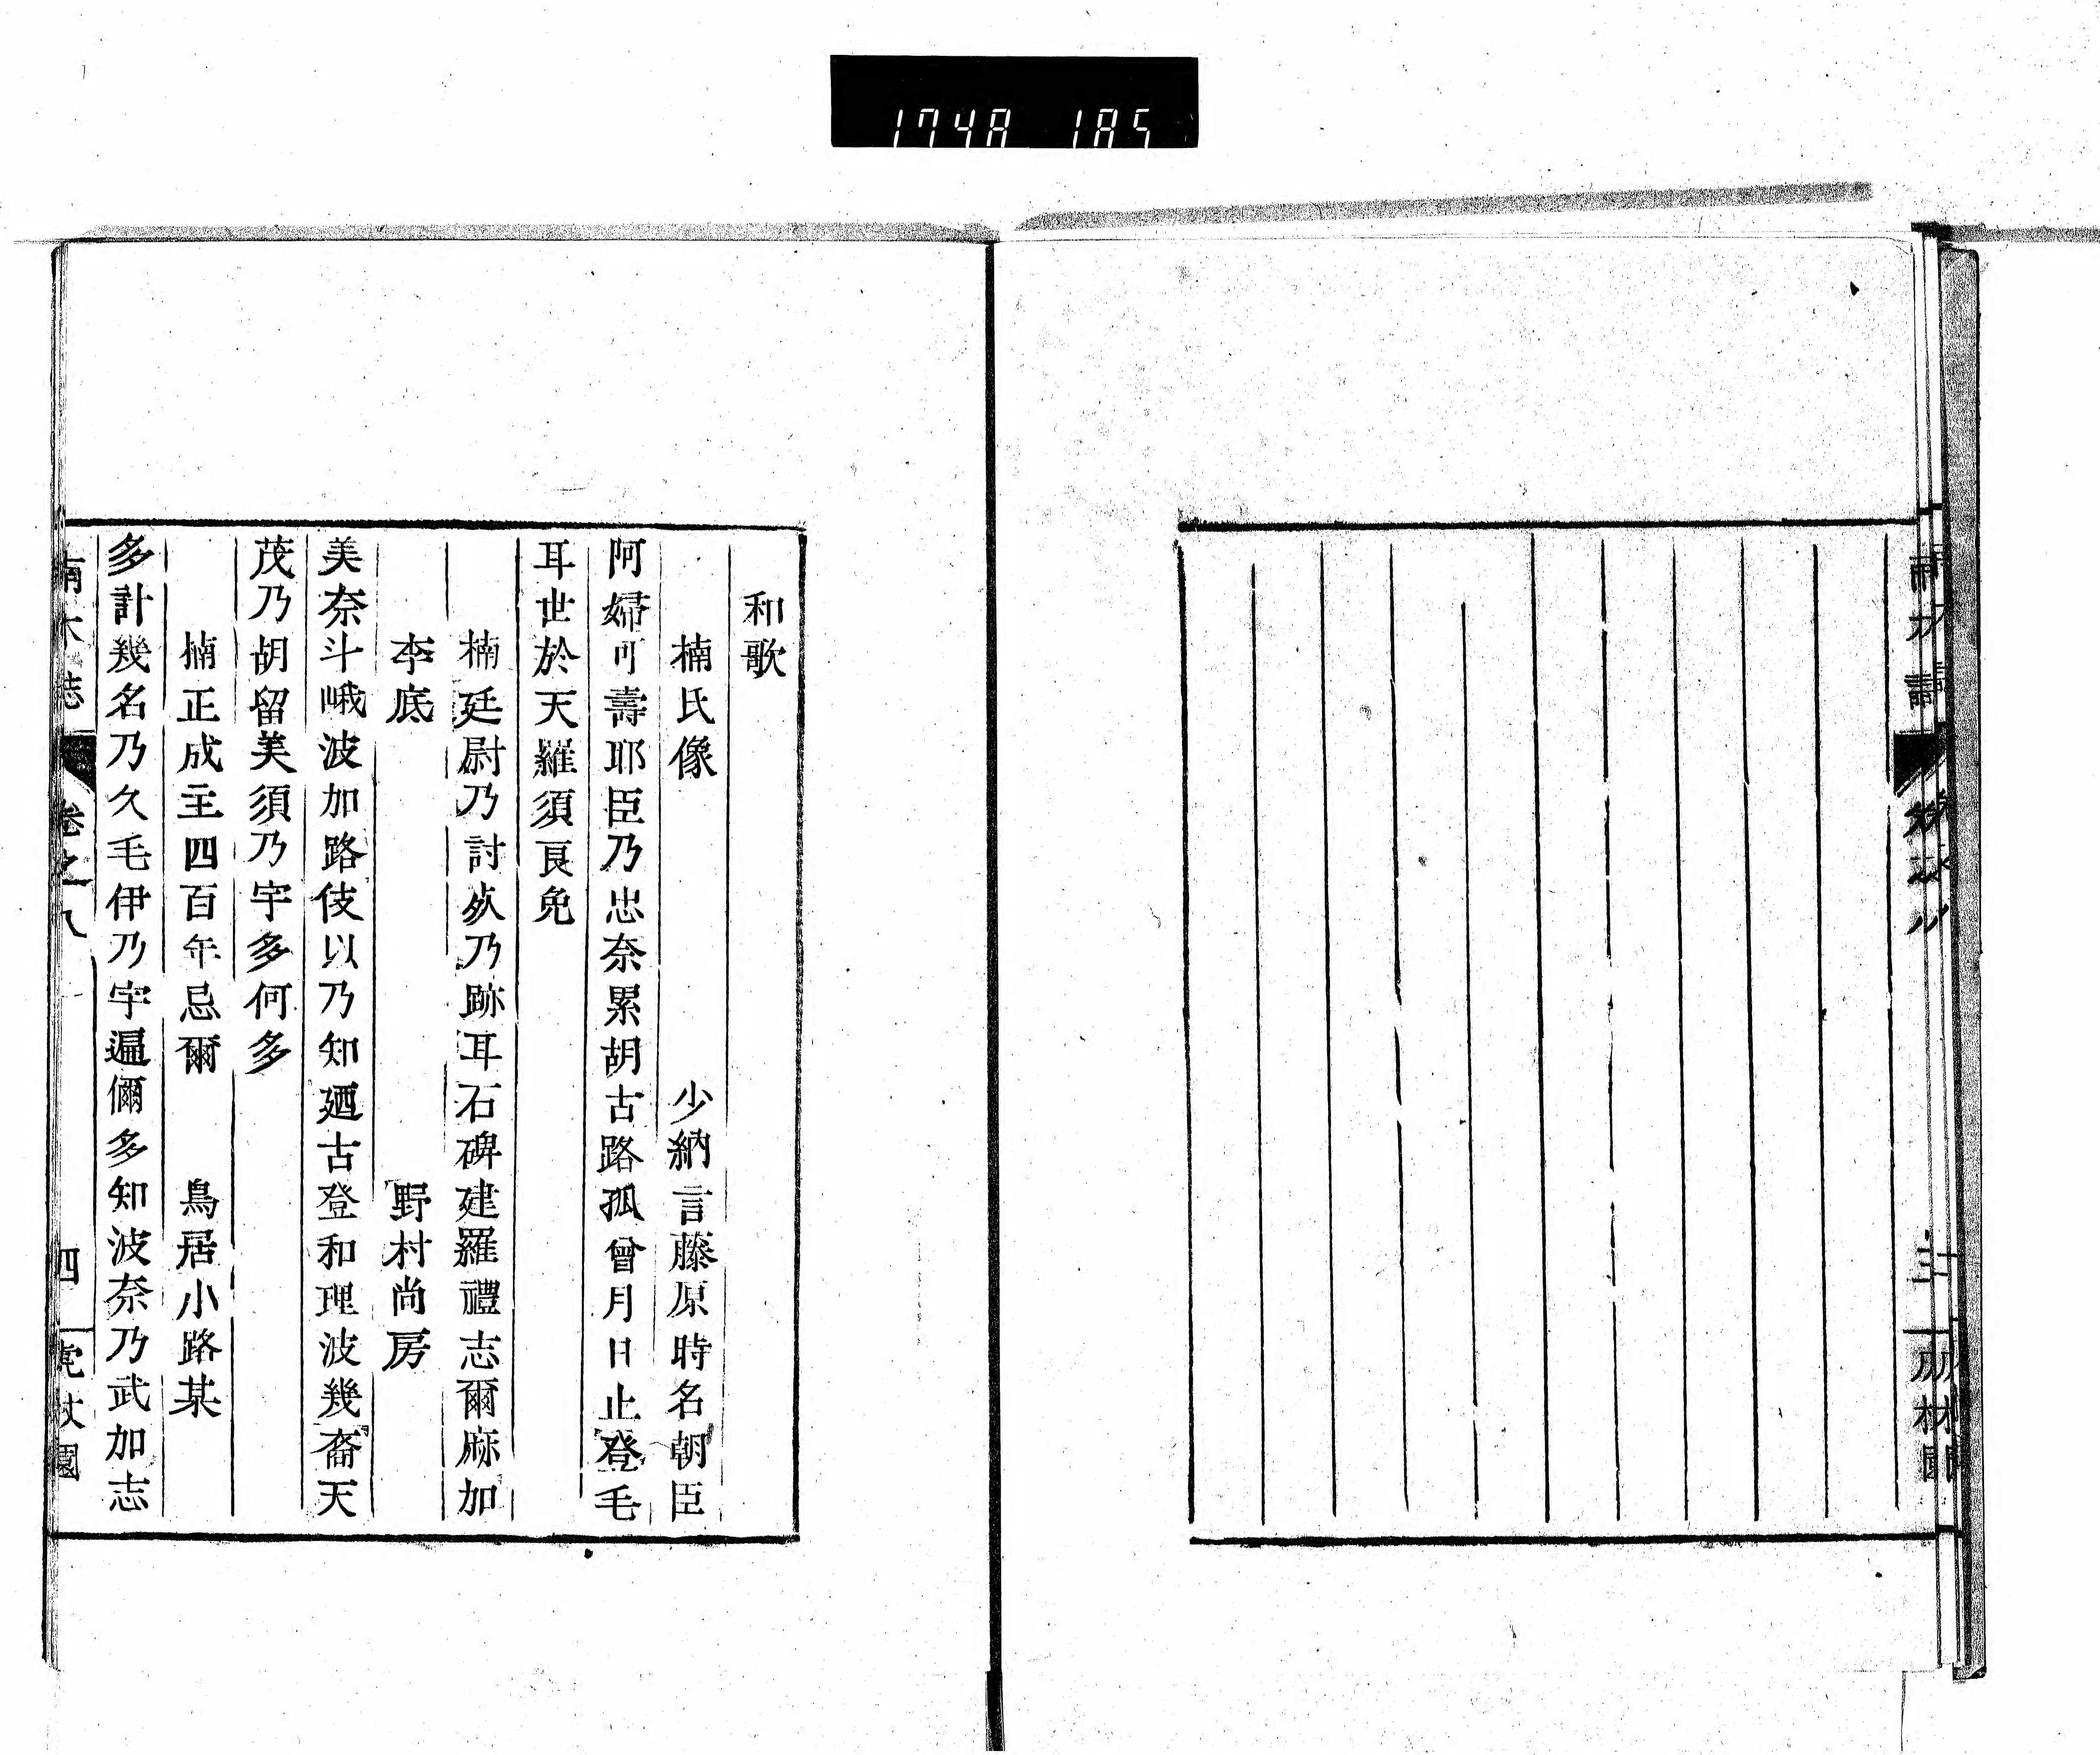 1748 185
和歌
楠氏像 少納言藤原時名朝臣
阿婦可壽耶臣乃忠奈累胡古路孤曾月日止登毛
耳世於天羅須良免
楠廷尉乃討死乃跡耳石碑建羅禮志爾麻加
李底 野村尚房
美奈斗峨波加路伎以乃知廼古登和理波幾裔天
茂乃胡留美須乃宇多何多
楠正成主四百年忌爾 鳥居小路某
多計幾名乃久毛伊乃宇遍儞多知波奈乃武加志
南木誌 卷之八 四 虎杖園